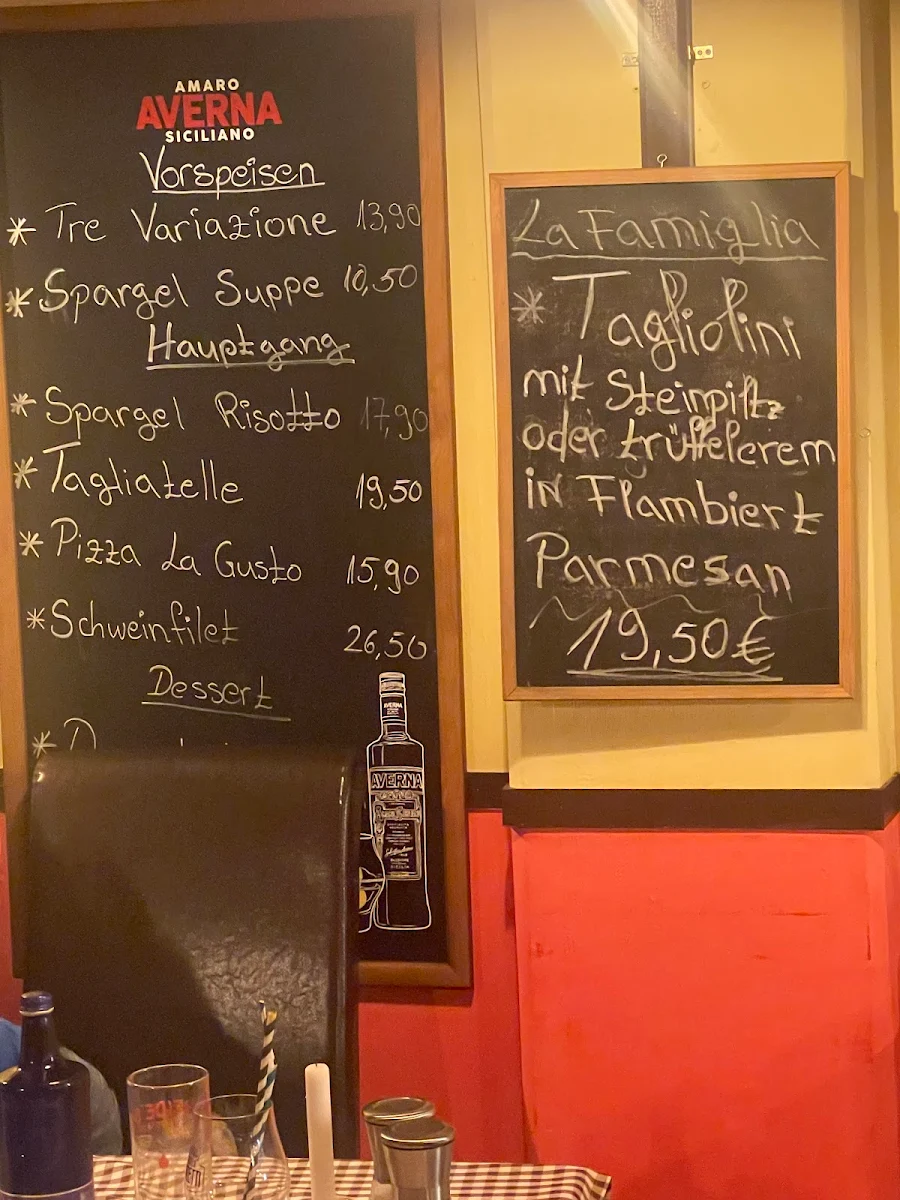 AMARO
AVERNA
SICILIANO
Vorspeisen
* Tre Variazione 13,90
* Spargel Suppe 10,50
Hauptgang
* Spargel Risotto 17,90
* Tagliatelle 19,50
* Pizza La Gusto 15,90
* Schweinfilet 26,50
Dessert
AVERNA
AVERNA
SICILIA
La Famiglia
* Tagliolini
mit Steinpiltz
oder trüffelcrem
in Flambiert
Parmesan
19,50€